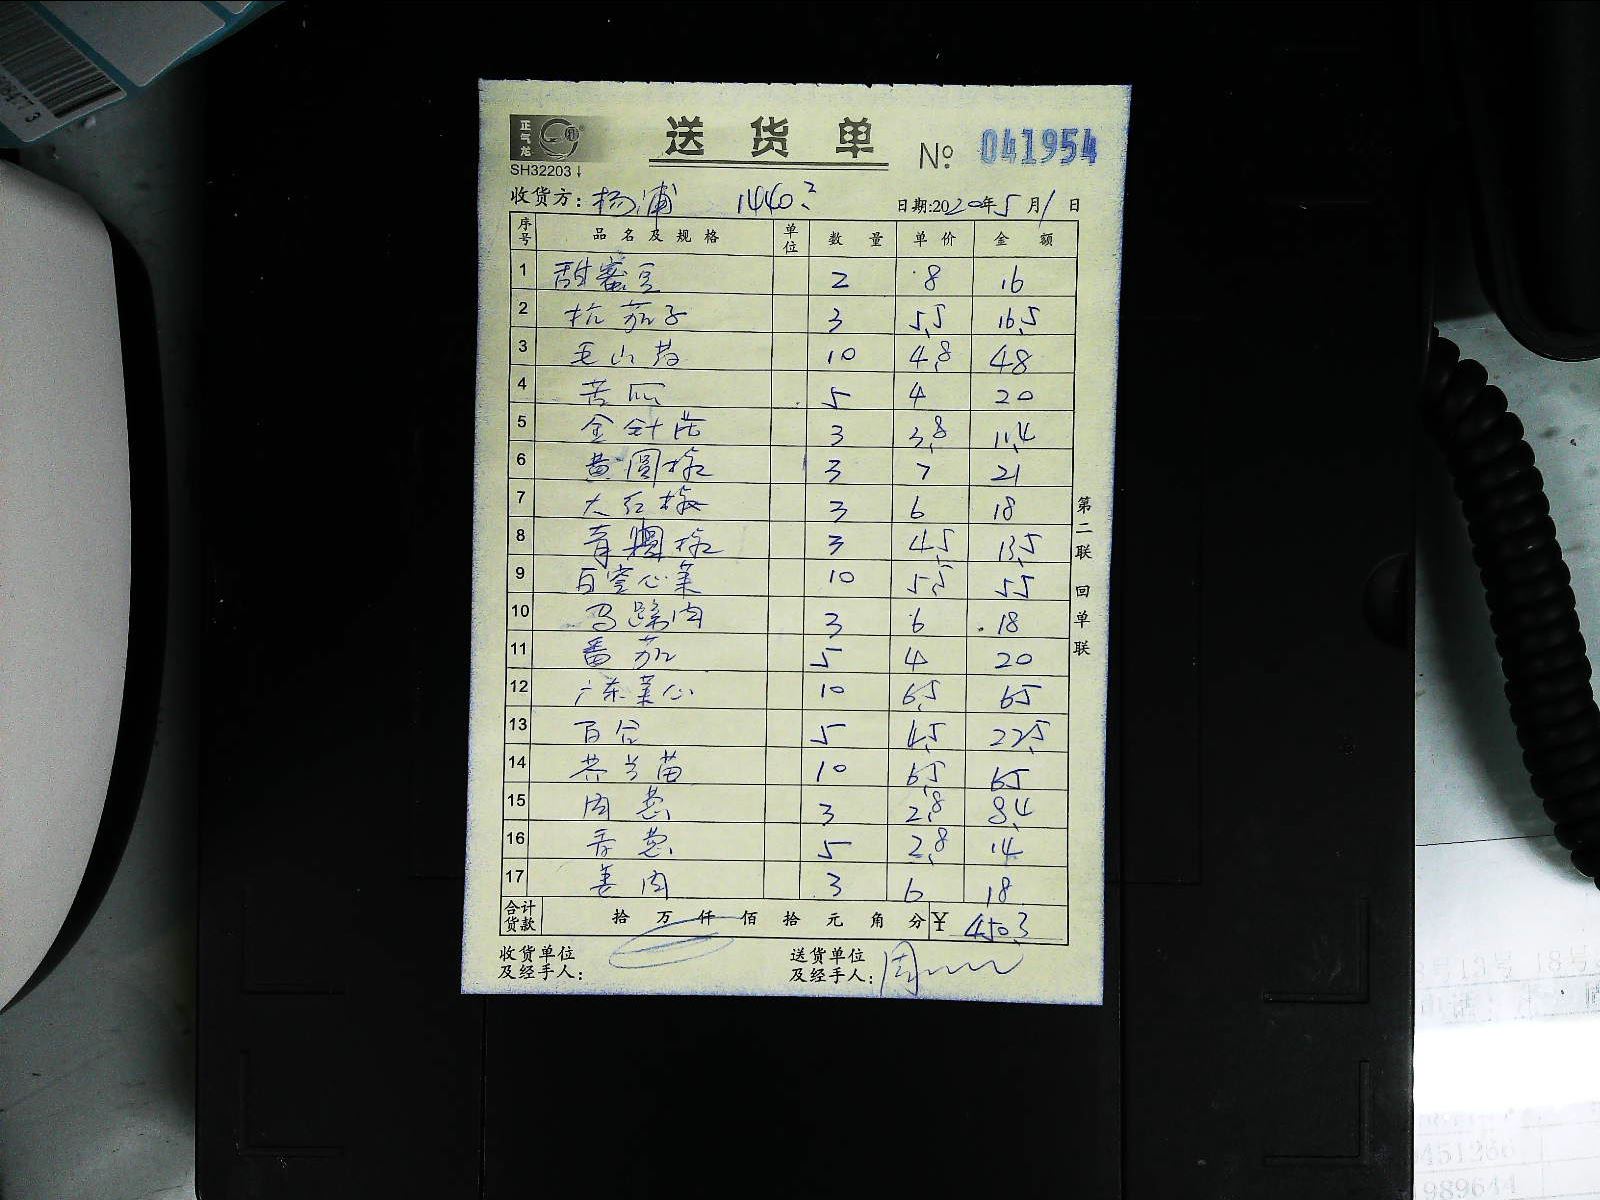 正气龙
SH32203
送货单
№ 041954
收货方: 杨浦 1440.2
日期:2020年5月1日
序号 品名及规格 单位 数量 单价 金额
1 甜蜜豆 2 8 16
2 杭茄子 3 5.5 16.5
3 毛山药 10 4.8 48
4 苦瓜 5 4 20
5 金针菇 3 3.8 11.4
6 黄圆椒 3 7 21
7 大红椒 3 6 18
8 青圆椒 3 4.5 13.5
9 白空心菜 10 5.5 55
10 马蹄肉 3 6 18
11 番茄 5 4 20
12 广东菜心 10 6.5 65
13 百合 5 4.5 22.5
14 芥兰苗 10 6.5 65
15 肉葱 3 2.8 8.4
16 香葱 5 2.8 14
17 姜肉 3 6 18
合计货款 拾 万 仟 佰 拾 元 角 分 ¥ 450.3
收货单位及经手人:
送货单位及经手人: 周
第二联 回单联
451266
989644